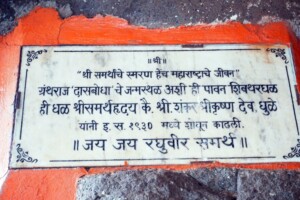 ॥ श्री ॥
"श्री समर्थांचे स्मरण हेच महाराष्ट्राचे जीवन"
ग्रंथराज "दासबोधा" चे जन्मस्थळ अशी ही पावन शिवथरघळ
ही घळ श्रीसमर्थहृदय कै. श्री. शंकर श्रीकृष्ण देव, धुळे
यांनी इ. स. १९३० मध्ये शोधून काढली.
॥ जय जय रघुवीर समर्थ ॥